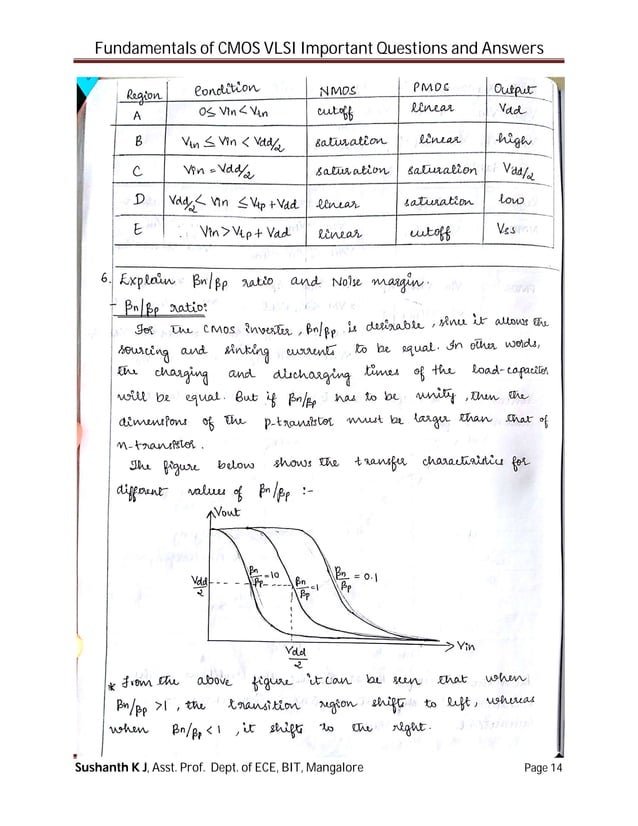 Fundamentals of CMOS VLSI Important Questions and Answers
Region Condition NMOS PMOS Output
A 0≤ Vin < Vtn cutoff linear Vdd
B Vtn ≤ Vin < Vdd/2 saturation linear high
C Vin = Vdd/2 saturation saturation Vdd/2
D Vdd/2 < Vin ≤ Vtp + Vdd linear saturation low
E Vin > Vtp + Vdd linear cutoff Vss
6. Explain βn/βp ratio and Noise margin.
- βn/βp ratio:
For the CMOS inverter, βn/βp is desirable, since it allows the
sourcing and sinking currents to be equal. In other words,
the charging and discharging times of the load-capacitor
will be equal. But if βn/βp has to be unity, then the
dimensions of the p-transistor must be larger than that of
n-transistor.
The figure below shows the transfer characteristics for
different values of βn/βp :-
Vout
Vdd/2
βn/βp = 10
βn/βp = 1
βn/βp = 0.1
Vin
Vdd/2
* From the above figure it can be seen that when
βn/βp >1, the transition region shifts to left, whereas
when βn/βp < 1, it shifts to the right.
Sushanth K J, Asst. Prof. Dept. of ECE, BIT, Mangalore Page 14